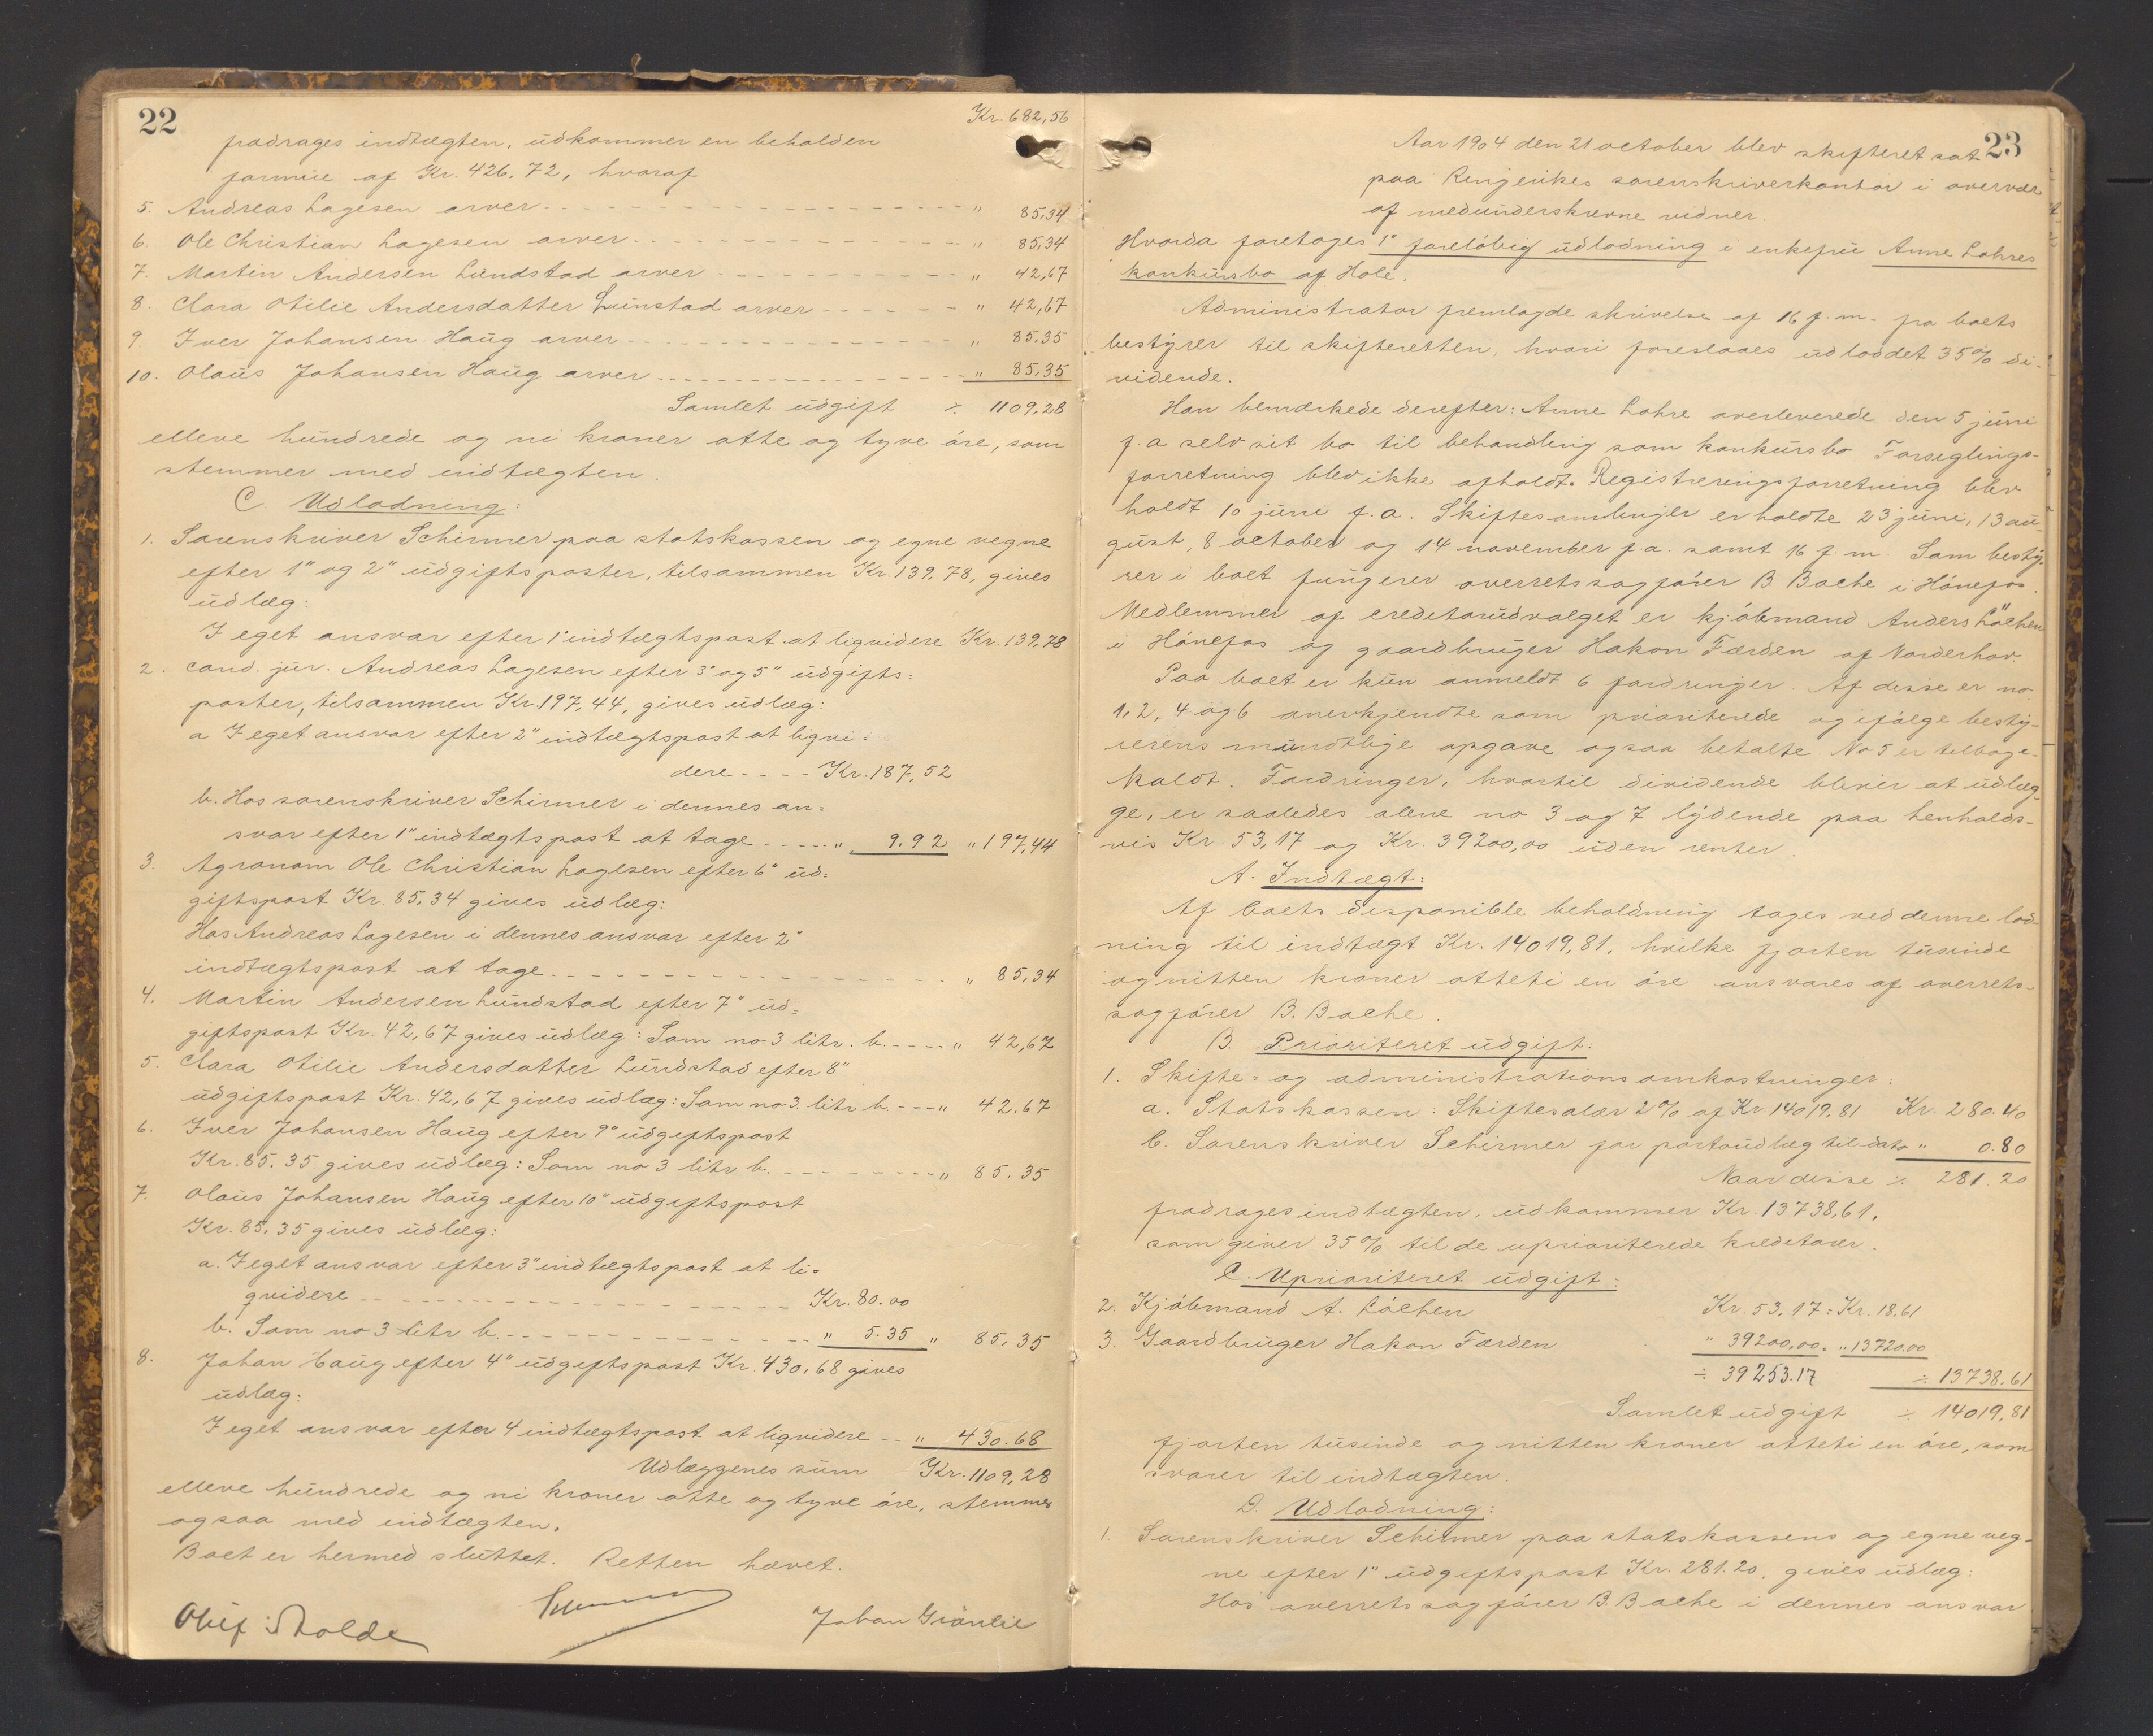 22
Kr. 682,56
fradrages indtægten, udkommer en beholden
formue af Kr. 426.72, hvoraf
5. Andreas Lagesen arver " 85,34
6. Ole Christian Lagesen arver " 85,34
7. Martin Andersen Lundstad arver " 42,67
8. Clara Otilie Andersdatter Lunstad arver " 42,67
9. Iver Johansen Haug arver " 85.35
10. Olaus Johansen Haug arver " 85,35
Samlet udgift ÷ 1109.28
elleve hundrede og ni kroner otte og tyve øre, som
stemmer med indtægten.
C. Udlodning:
1. Sorenskriver Schirmer paa statskassen og egne vegne
efter 1" og 2" udgiftsposter, tilsammen Kr. 139.78, gives
udlæg:
I eget ansvar efter 1" indtægtspost at liqvidere Kr. 139,78
2. cand. jur. Andreas Lagesen efter 3" og 5" udgifts=
poster, tilsammen Kr. 197,44, gives udlæg:
a I eget ansvar efter 2" indtægtspost at liqvi=
dere Kr. 187,52
b. Hos sorenskriver Schirmer i dennes an=
svar efter 1" indtægtspost at tage " 9.92 " 197,44
3. Agronom Ole Christian Lagesen efter 6" ud=
giftspost Kr. 85,34 gives udlæg:
Hos Andreas Lagesen i dennes ansvar efter 2"
indtægtspost at tage " 85,34
4. Martin Andersen Lundstad efter 7" ud=
giftspost Kr. 42,67 gives udlæg: Som no 3 litr. b. " 42,67
5. Clara Otilie Andersdatter Lundstad efter 8"
udgiftspost Kr. 42,67 gives udlæg: Som no 3. litr b. " 42.67
6. Iver Johansen Haug efter 9" udgiftspost
Kr. 85.35 gives udlæg: Som no 3 litr b. " 85.35
7. Olaus Johansen Haug efter 10" udgiftspost
Kr. 85,35 gives udlæg:
a. I eget ansvar efter 3" indtægtspost at li=
qvidere Kr. 80.00
b. Som no 3 litr b. " 5.35 " 85,35
8. Johan Haug efter 4" udgiftspost Kr. 430,68 gives
udlæg:
I eget ansvar efter 4 indtægtspost at liqvidere " 430.68
Udlæggenes sum Kr. 1109,28
elleve hundrede og ni kroner otte og tyve øre, stemmer
ogsaa med indtægten.
Boet er hermed sluttet. Retten hævet.
Schirmer
Oluf Stolde Johan Grønlie
23
Aar 1904 den 21 october blev skifteret sat
paa Ringerikes sorenskriverkontor i overvær
af medunderskrevne vidner.
Hvorda foretages 1" foreløbig udlodning i enkefru Anne Lohres
konkursbo af Hole.
Administrator fremlagde skrivelse af 16 f. m. fra boets
bestyrer til skifteretten, hvori foreslaaes udloddet 35% di-
vidende.
Han bemærkede derefter: Anne Lohre overleverede den 5 juni
f. a selv sit bo til behandling som konkursbo Forseglings-
forretning blev ikke afholdt. Registreringsforretning blev
holdt 10 juni f. a. Skiftesamlinger er holdte 23 juni, 13 au-
gust, 8 october og 14 november f. a. samt 16 f. m. Som besty-
rer i boet fungerer overretssagfører B. Bache i Hønefos.
Medlemmer af creditorudvalget er kjøbmand Anders Løchen
i Hønefos og gaardbruger Hakon Færden af Norderhov.
Paa boet er kun anmeldt 6 fordringer. Af disse er no
1, 2, 4 og 6 anerkjendte som prioriterede og ifølge besty-
rerens mundtlige opgave ogsaa betalte. No 5 er tilbage-
kaldt. Fordringer, hvortil dividende blevir at udlæg-
ge, er saaledes alene no 3 og 7 lydende paa henholds-
vis Kr. 53,17 og Kr. 39200,00 uden renter.
A. Indtægt:
Af boets disponible beholdning tages ved denne lod-
ning til indtægt Kr. 14019,81, hvilke fjorten tusinde
og nitten kroner otteti en øre ansvares af overrets-
sagfører B. Bache.
B. Prioriteret udgift:
1. Skifte= og administrationsomkostninger:
a. Statskassen: Skiftesalær 2% af Kr. 14019.81 Kr. 280.40
b. Sorenskriver Schirmer for portoudlæg til dato " 0.80
Naar disse ÷ 281.20
fradrages indtægten, udkommer Kr. 13738,61,
som giver 35% til de uprioriterede kreditorer.
C. Uprioriteret udgift:
2. Kjøbmand A. Løchen Kr. 53,17 = Kr. 18,61
3. Gaardbruger Hakon Færden " 39200,00 = " 13720,00
÷ 39253.17 ÷ 13738,61
Samlet udgift ÷ 14019,81
fjorten tusinde og nitten kroner otteti en øre, som
svarer til indtægten.
D. Udlodning:
1. Sorenskriver Schirmer paa statskassens og egne veg-
ne efter 1" udgiftspost Kr. 281.20, gives udlæg:
Hos overretssagfører B. Bache i dennes ansvar